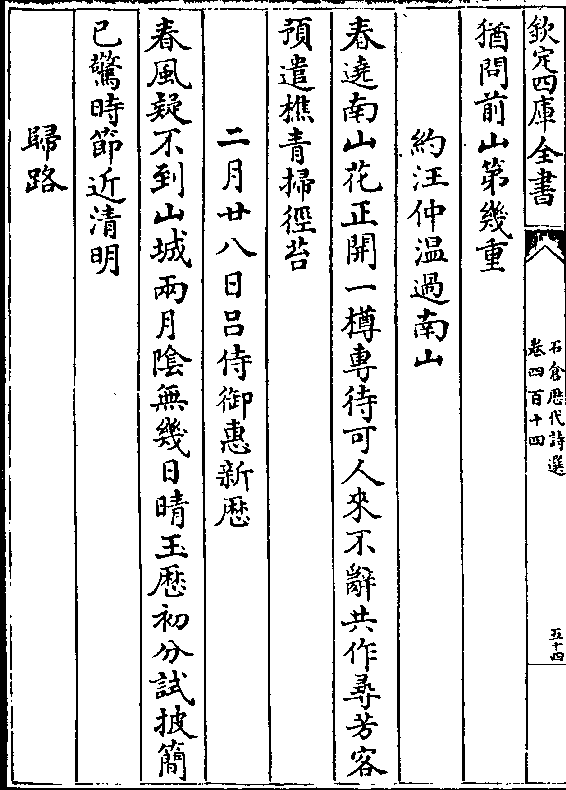 欽定四庫全書
石倉歷代詩選
卷四百十四
五十四
猶問前山第幾重
約汪仲温過南山
春遶南山花正開一樽專待可人來不辭共作尋芳客
預遣樵青掃徑苔
二月廿八日吕侍御惠新歴
春風疑不到山城兩月陰無幾日晴玉歴初分試披簡
已驚時節近清明
歸路